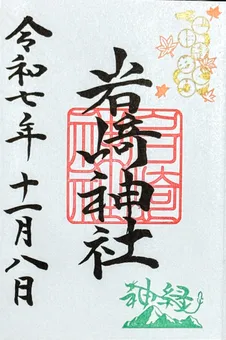 岩崎神社
令和七年 十一月八日
神縁